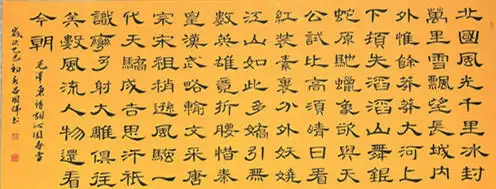 北國風光千里冰封
萬里雪飄望長城內
外惟餘莽莽大河上
下頓失滔滔山舞銀
蛇原馳蠟象欲與天
公試比高須晴日看
紅裝素裹分外妖嬈
江山如此多嬌引無
數英雄竟折腰惜秦
皇漢武略輸文采唐
宗宋祖稍遜風騷一
代天驕成吉思汗祇
識彎弓射大雕俱往
矣數風流人物還看
今朝
毛澤東詩詞沁園春雪
歲次